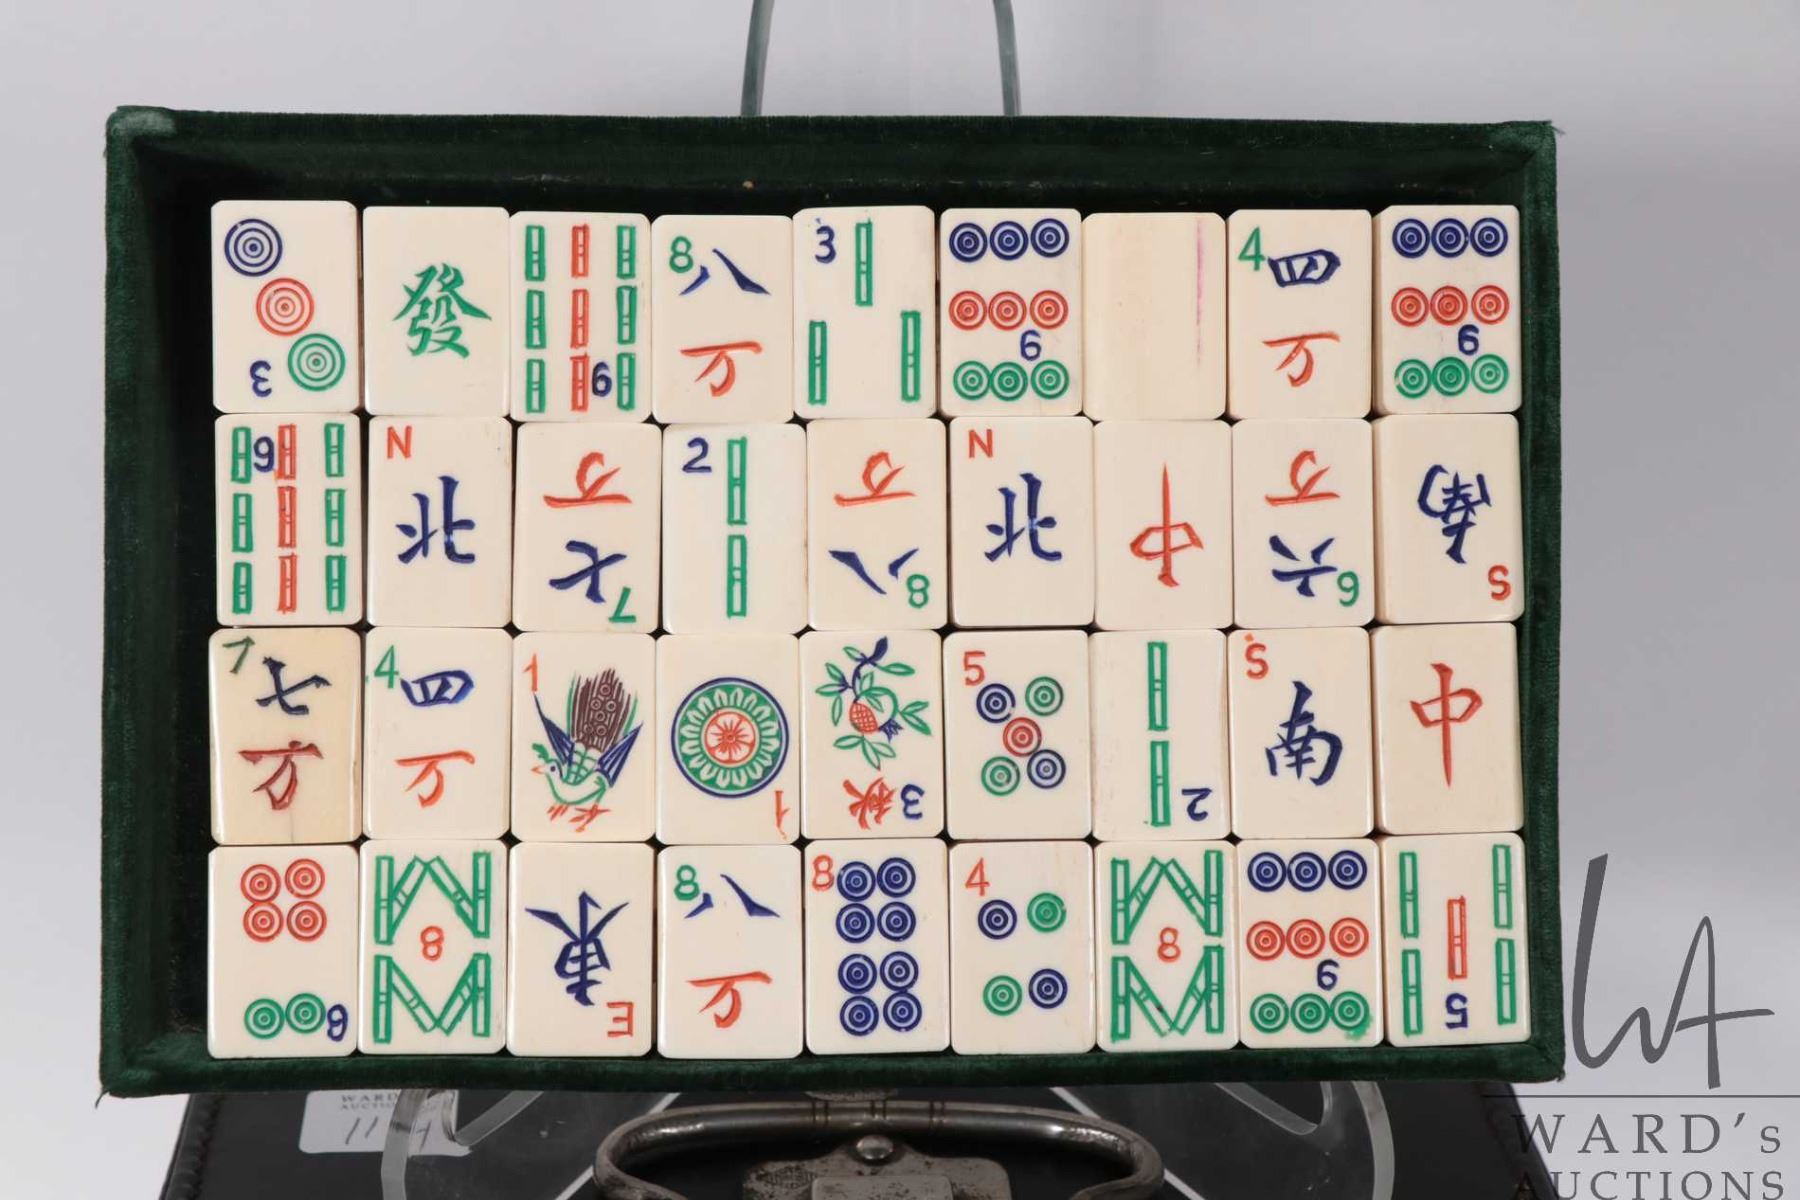 3 發 9 8 八 万 3 9 4 四 万 9
9 N 北 万 七 7 2 万 八 8 N 北 中 万 六 6 南 S
7 七 万 4 四 万 1 1 秋 3 5 2 S 南 中
6 8 東 E 8 八 万 8 4 8 9 5
WARD's
AUCTIONS